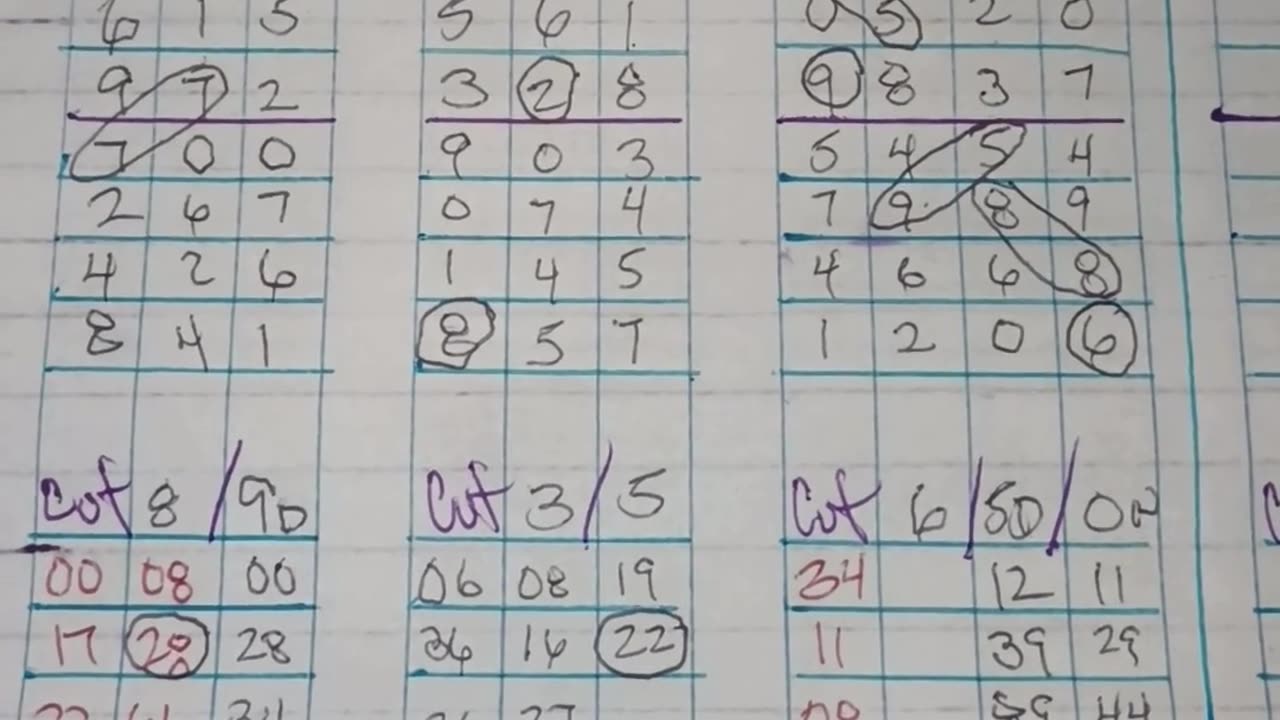 6 1 5 5 6 1 0 5 2 0
9 7 2 3 2 8 9 8 3 7
7 0 0 9 0 3 5 4 5 4
2 6 7 0 7 4 7 9 8 9
4 2 6 1 4 5 4 6 6 8
8 4 1 8 5 7 1 2 0 6
Cut 8 / 9D Cut 3 / 5 Cut 6 / 5D / 0D
00 08 00 06 08 19 34 12 11
17 28 28 36 14 22 11 39 29
27 44